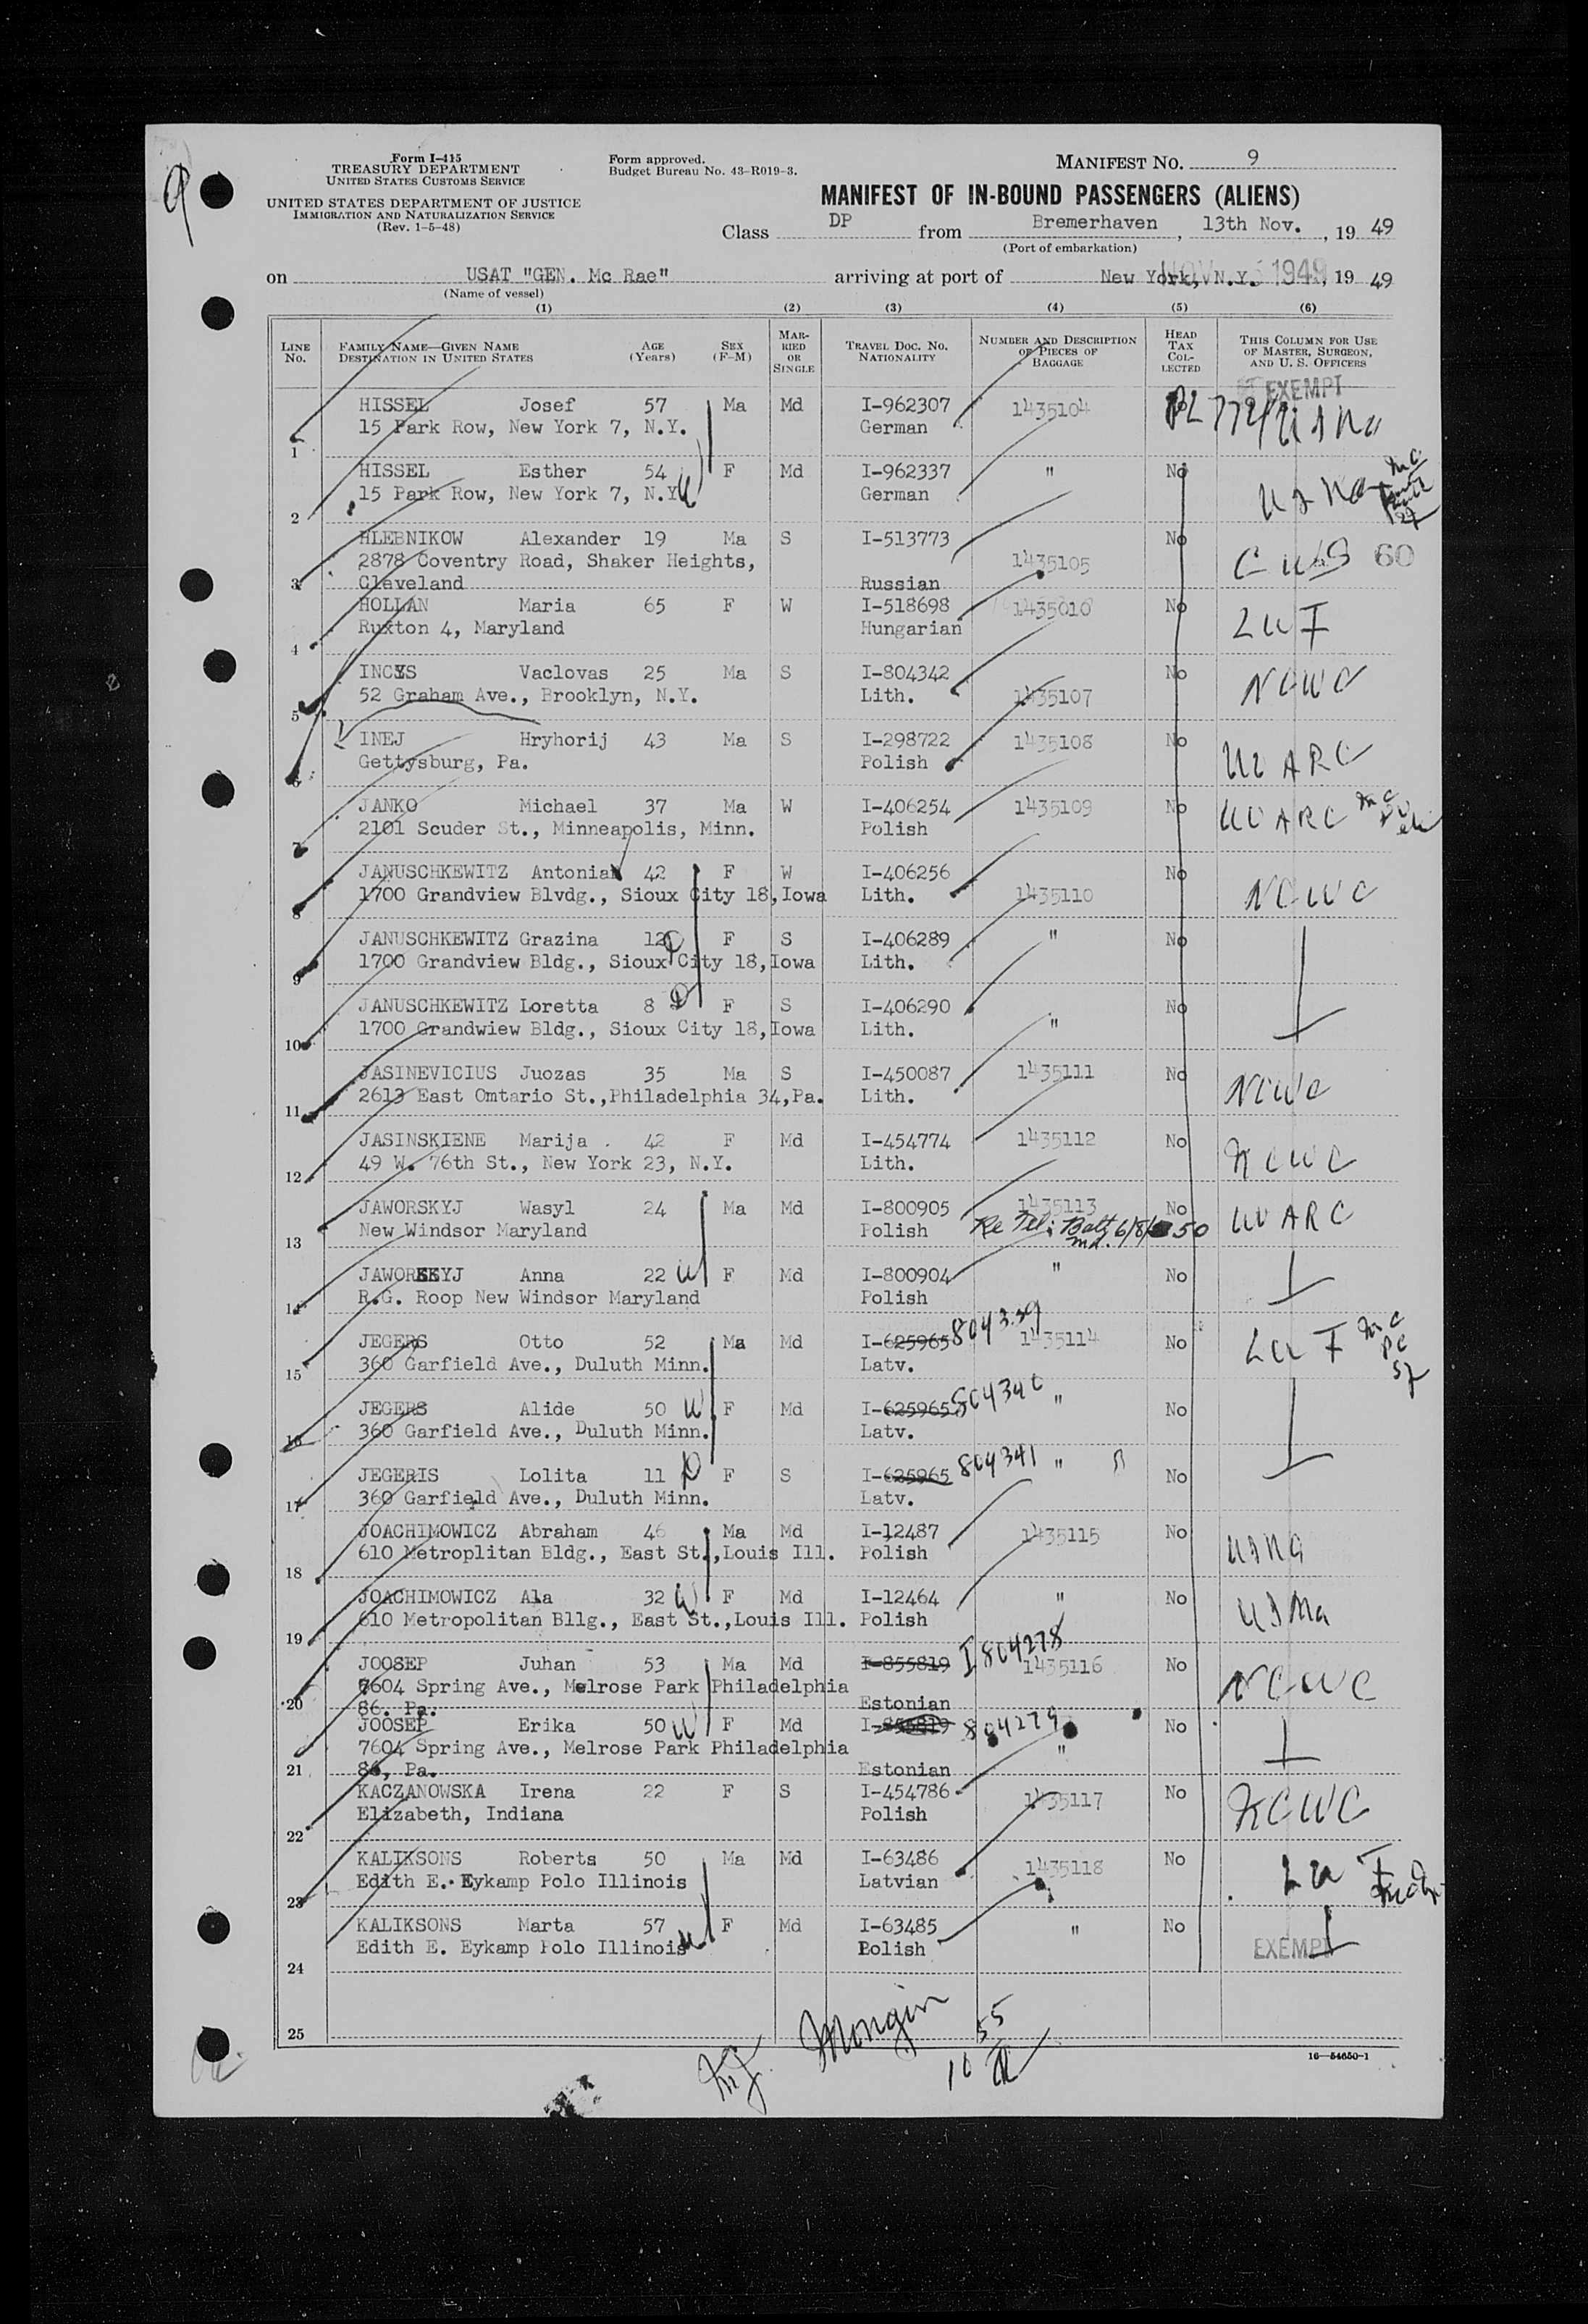 9
Form I-415
TREASURY DEPARTMENT
UNITED STATES CUSTOMS SERVICE
UNITED STATES DEPARTMENT OF JUSTICE
IMMIGRATION AND NATURALIZATION SERVICE
(Rev. 1-5-48)
Form approved.
Budget Bureau No. 43-R019-3.
MANIFEST NO. 9
MANIFEST OF IN-BOUND PASSENGERS (ALIENS)
Class DP from Bremerhaven, 13th Nov., 19 49
(Port of embarkation)
on USAT "GEN. Mc Rae" arriving at port of New York, N.Y. 1949, 19 49
(Name of vessel)
(1) (2) (3) (4) (5) (6)
LINE NO.
FAMILY NAME—GIVEN NAME DESTINATION IN UNITED STATES
AGE (Years)
SEX (F-M)
MARRIED OR SINGLE
TRAVEL DOC. NO. NATIONALITY
NUMBER AND DESCRIPTION OF PIECES OF BAGGAGE
HEAD TAX COLLECTED
THIS COLUMN FOR USE OF MASTER, SURGEON, AND U. S. OFFICERS
EXEMPT
HISSEL Josef 57 Ma Md I-962307 1435104
15 Park Row, New York 7, N.Y. German
1
HISSEL Esther 54 W F Md I-962337 " No
15 Park Row, New York 7, N.Y. German
2
HLEBNIKOW Alexander 19 Ma S I-513773 1435105 No
2878 Coventry Road, Shaker Heights, CWS 60
3 Cleveland Russian
HOLLAN Maria 65 F W I-518698 1435010 No LWF
Ruxton 4, Maryland Hungarian
4
INCYS Vaclovas 25 Ma S I-804342 No NCWC
52 Graham Ave., Brooklyn, N.Y. Lith. 1435107
5
INEJ Hryhorij 43 Ma S I-298722 1435108 No UUARC
Gettysburg, Pa. Polish
6
JANKO Michael 37 Ma W I-406254 1435109 No UUARC
2101 Scuder St., Minneapolis, Minn. Polish
7
JANUSCHKEWITZ Antonia 42 F W I-406256 No NCWC
1700 Grandview Blvdg., Sioux City 18, Iowa Lith. 1435110
8
JANUSCHKEWITZ Grazina 12 F S I-406289 " No
1700 Grandview Bldg., Sioux City 18, Iowa Lith.
9
JANUSCHKEWITZ Loretta 8 F S I-406290 No
1700 Grandwiew Bldg., Sioux City 18, Iowa Lith. "
10
JASINEVICIUS Juozas 35 Ma S I-450087 1435111 No NCWC
2613 East Omtario St.,Philadelphia 34,Pa. Lith.
11
JASINSKIENE Marija . 42 F Md I-454774 1435112 No NCWC
49 W. 76th St., New York 23, N.Y. Lith.
12
JAWORSKYJ Wasyl 24 Ma Md I-800905 1435113 No UUARC
New Windsor Maryland Polish Re Tel: Balt, Md. 6/8/50
13
JAWORSKYJ Anna 22 W F Md I-800904 " No
R.G. Roop New Windsor Maryland Polish
14
JEGERS Otto 52 Ma Md I-625965 804339 1435114 No LWF
360 Garfield Ave., Duluth Minn. Latv.
15
JEGERS Alide 50 W F Md I-625965 804340 " No
360 Garfield Ave., Duluth Minn. Latv.
16
JEGERIS Lolita 11 F S I-625965 804341 " No
360 Garfield Ave., Duluth Minn. Latv.
17
JOACHIMOWICZ Abraham 46 Ma Md I-12487 1435115 No USNA
610 Metroplitan Bldg., East St.,Louis Ill. Polish
18
JOACHIMOWICZ Ala 32 W F Md I-12464 " No USNA
610 Metropolitan Bllg., East St.,Louis Ill. Polish
19
JOOSEP Juhan 53 Ma Md I-855819 I804278 1435116 No NCWC
7604 Spring Ave., Melrose Park Philadelphia
20 86. Pa. Estonian
JOOSEP Erika 50 W F Md I-855819 804279 No
7604 Spring Ave., Melrose Park Philadelphia "
21 86, Pa. Estonian
KACZANOWSKA Irena 22 F S I-454786 1435117 No NCWC
Elizabeth, Indiana Polish
22
KALIKSONS Roberts 50 Ma Md I-63486 1435118 No LWF
Edith E. Eykamp Polo Illinois Latvian
23
KALIKSONS Marta 57 W F Md I-63485 " No
Edith E. Eykamp Polo Illinois Polish EXEMPT
24
25
Mongin
16—54650-1